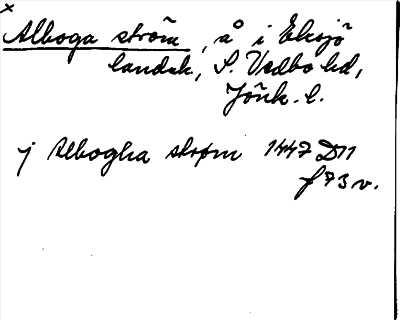 x
Alboga ström, å i Eksjö
landsk, S. Vedbo hd,
Jönk. l.
j Albogha strøm 1447 D11
f 73 v.